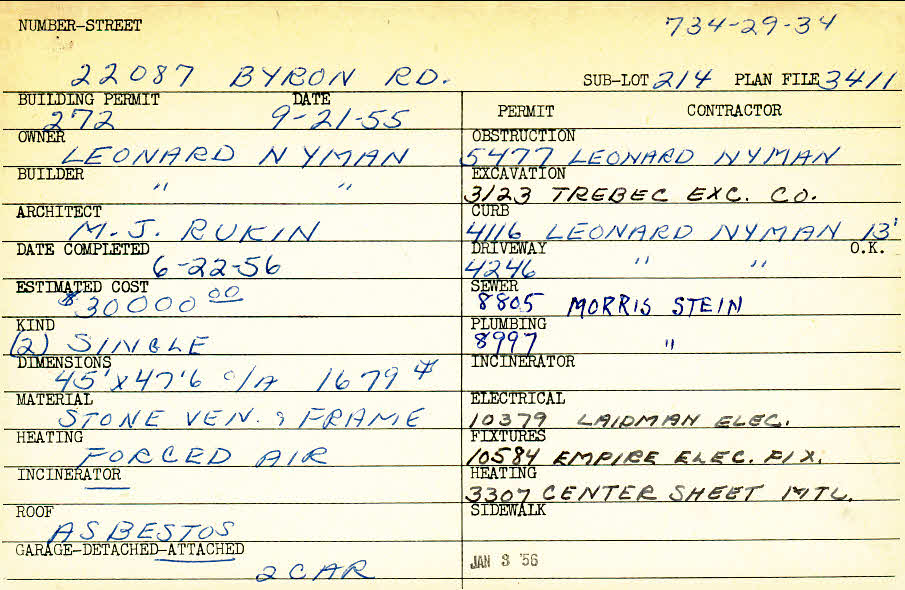 NUMBER-STREET
734-29-34
22087 BYRON RD.
SUB-LOT 214 PLAN FILE 3411
BUILDING PERMIT DATE
272 9-21-55
OWNER
LEONARD NYMAN
BUILDER
" "
ARCHITECT
M. J. RUKIN
DATE COMPLETED
6-22-56
ESTIMATED COST
$30000 00
KIND
(2) SINGLE
DIMENSIONS
45' x 47'6 O/A 1679 #
MATERIAL
STONE VEN. & FRAME
HEATING
FORCED AIR
INCINERATOR
ROOF
ASBESTOS
GARAGE-DETACHED-ATTACHED
2 CAR
PERMIT CONTRACTOR
OBSTRUCTION
5477 LEONARD NYMAN
EXCAVATION
3123 TREBEC EXC. CO.
CURB
4116 LEONARD NYMAN 13'
DRIVEWAY O.K.
4246 " "
SEWER
8805 MORRIS STEIN
PLUMBING
8997 "
INCINERATOR
ELECTRICAL
10379 LAIDMAN ELEC.
FIXTURES
10584 EMPIRE ELEC. FIX.
HEATING
3307 CENTER SHEET MTL.
SIDEWALK
JAN 3 '56